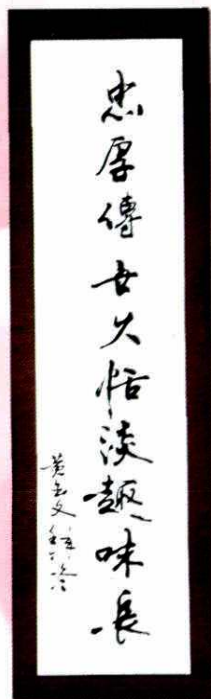 忠厚傳世久恬淡趣味長
黄玉文